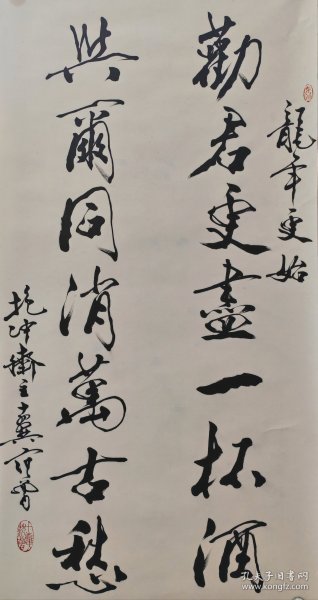 龍年更始
勸君更盡一杯酒
與爾同消萬古愁
抱冲齋主
孔夫子旧书网